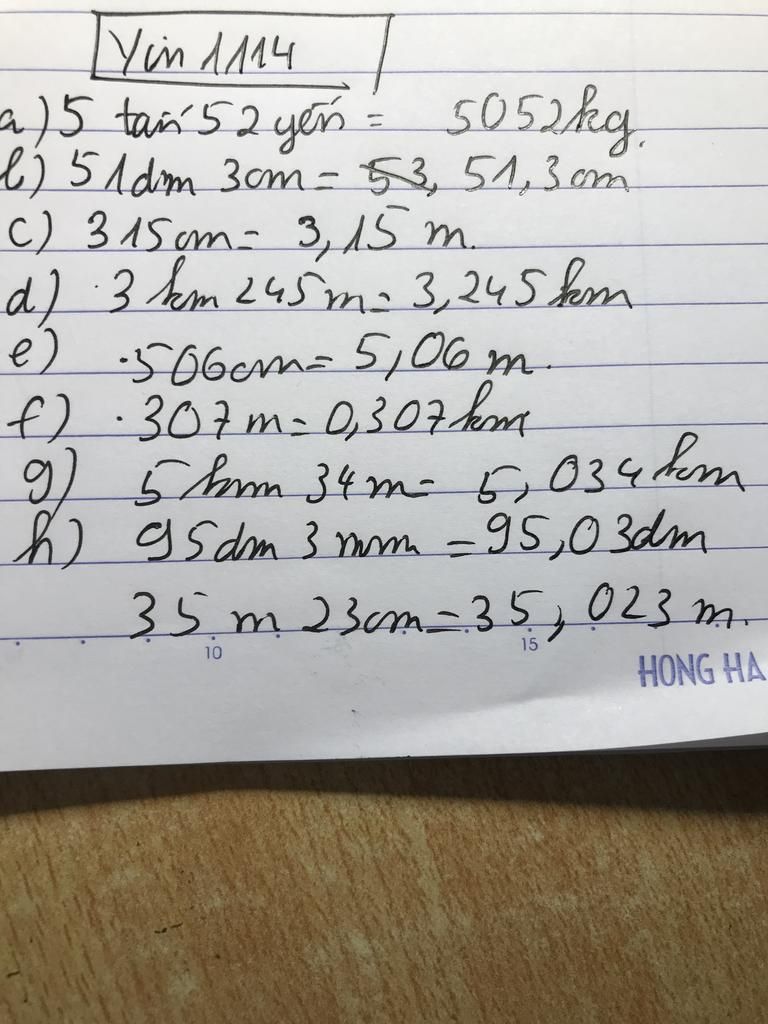 Yin 1114
a) 5 tấn 52 yến = 5052kg.
b) 51dm 3cm = 53, 51,3cm
c) 315cm = 3,15 m.
d) 3 km 245m = 3,245km
e) 506cm = 5,06 m.
f) 307m = 0,307km
g) 5km 34m = 5,034km
h) 95dm 3mm = 95,03dm
35 m 23cm = 35,023 m.
10 15
HONG HA